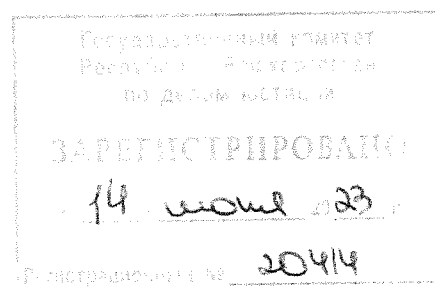 Государственный комитет
Республики Башкортостан
по делам юстиции
ЗАРЕГИСТРИРОВАНО
14 июня 2023 г.
Регистрационный № 20414